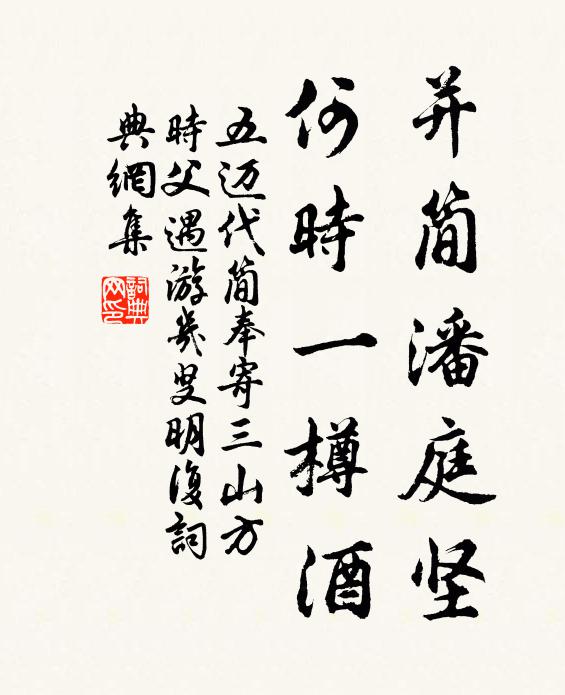 并简潘庭坚
何時一樽酒
五迈代简奉寄三山方
時父遇游幾叟明復詞
典網集
詞典網印